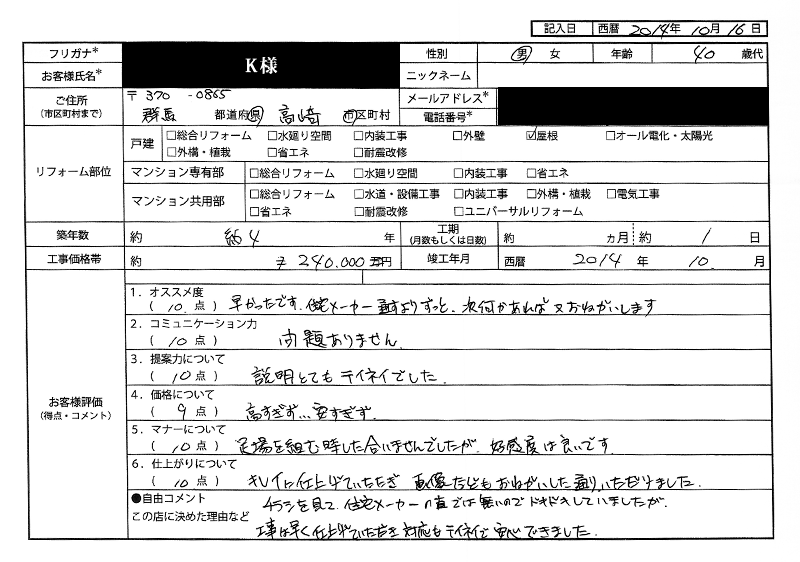 記入日 西暦 2014年 10月 16日
フリガナ* K様 性別 男 女 年齢 40 歳代
お客様氏名* ニックネーム
ご住所 (市区町村まで) 〒370-0865 メールアドレス*
群馬 都道府県 高崎 市区町村 電話番号*
リフォーム部位 戸建 □総合リフォーム □水廻り空間 □内装工事 □外壁 ☑屋根 □オール電化・太陽光
□外構・植栽 □省エネ □耐震改修
マンション専有部 □総合リフォーム □水廻り空間 □内装工事 □省エネ
マンション共用部 □総合リフォーム □水道・設備工事 □内装工事 □外構・植栽 □電気工事
□省エネ □耐震改修 □ユニバーサルリフォーム
築年数 約 約4 年 工期 (月数もしくは日数) 約 ヵ月 約 1 日
工事価格帯 約 240.000 万円 竣工年月 西暦 2014 年 10. 月
お客様評価 (得点・コメント)
1. オススメ度
( 10. 点 ) 早かったです。住宅メーカー通すよりずっと、次何かあれば又おねがいします
2. コミュニケーション力
( 10 点 ) 問題ありません.
3. 提案力について
( 10 点 ) 説明とてもテイネイでした.
4. 価格について
( 9 点 ) 高すぎず... 安すぎず.
5. マナーについて
( 10 点 ) 足場を組む時した合いませんでしたが、好感度は良いです.
6. 仕上がりについて
( 10 点 ) キレイに仕上げていただき おねがいした通り、いただけました.
●自由コメント
この店に決めた理由など
チラシを見て、住宅メーカーの直では無いのでドキドキしていましたが、
工事は早く仕上げていただき対応もテイネイで安心できました.